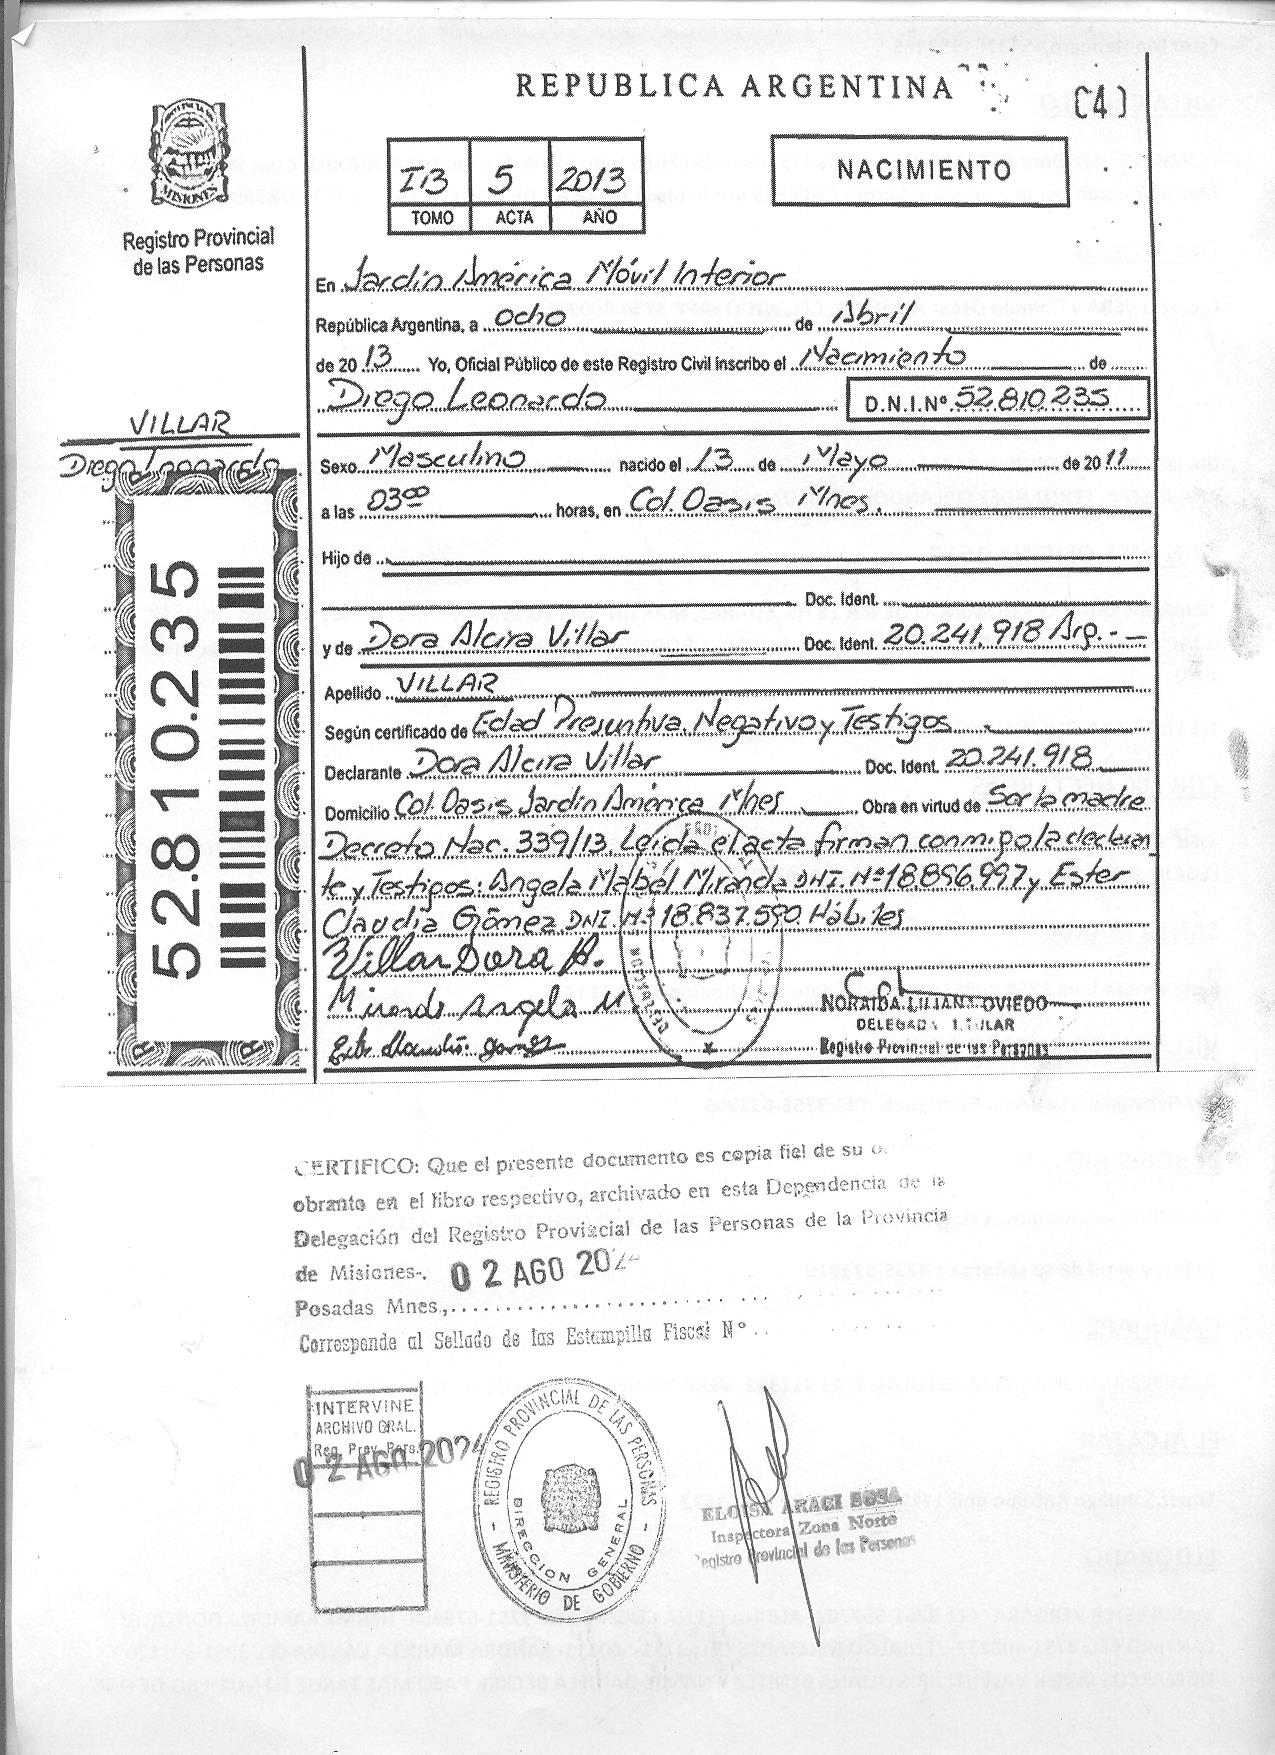 REPUBLICA ARGENTINA
(4)
MISIONES
Registro Provincial
de las Personas
IB 5 2013
TOMO ACTA AÑO
NACIMIENTO
En Jardín América Móvil Interior
República Argentina, a ocho de Abril
de 2013 Yo, Oficial Público de este Registro Civil inscribo el Nacimiento de
Diego Leonardo D.N.I.Nº 52.810.235
VILLAR
Diego Leonardo
52.810.235
Sexo Masculino nacido el 13 de Mayo de 2011
a las 03 00 horas, en Col. Oasis Mnes.
Hijo de
Doc. Ident.
y de Dora Alcira Villar Doc. Ident. 20.241.918 Arg.-
Apellido VILLAR
Según certificado de Edad Presuntiva, Negativo y Testigos
Declarante Dora Alcira Villar Doc. Ident. 20.241.918
Domicilio Col. Oasis Jardín América Mnes Obra en virtud de Ser la madre
Decreto Nac. 339/13. Leída el acta firman conmigo la declaran
te y Testigos: Angela Mabel Miranda DNI. Nº 18.896.997 y Ester
Claudia Gómez DNI. Nº 18.837.590. Hábiles
Villar Dora A.
Miranda Angela M
Ester Claudia Gomez
NORAIDA LILIANA OVIEDO
DELEGADA TITULAR
Registro Provincial de las Personas
CERTIFICO: Que el presente documento es copia fiel de su
obrante en el libro respectivo, archivado en esta Dependencia de la
Delegación del Registro Provincial de las Personas de la Provincia
de Misiones-. 02 AGO 202
Posadas Mnes.,
Corresponde al Sellado de las Estampilla Fiscal Nº
INTERVINE
ARCHIVO GRAL.
Reg. Prov. Pers.
02 AGO 2024
REGISTRO PROVINCIAL DE LAS PERSONAS
DIRECCION GENERAL
MINISTERIO DE GOBIERNO
ELOISA ARACI SOSA
Inspectora Zona Norte
Registro Provincial de las Personas